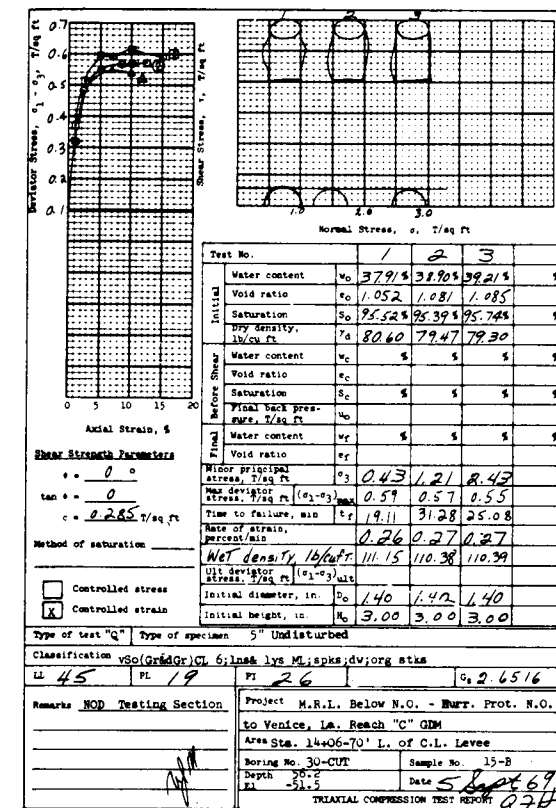 Deviator Stress, σ₁ - σ₃, T/sq ft
0.7
0.6
0.5
0.4
0.3
0.2
0.1
0 5 10 15 20
Axial Strain, %
Shear Stress, τ, T/sq ft
1 2 3
1.0 2.0 3.0
Normal Stress, σ, T/sq ft
Shear Strength Parameters
φ = 0 °
tan φ = 0
c = 0.285 T/sq ft
Method of saturation
Controlled stress
X Controlled strain
Test No. 1 2 3
Initial
Water content w₀ 37.91% 38.90% 39.21% %
Void ratio e₀ 1.052 1.081 1.085
Saturation S₀ 95.52% 95.39% 95.74% %
Dry density, lb/cu ft γd 80.60 79.47 79.30
Before Shear
Water content wc % % % %
Void ratio ec
Saturation Sc % % % %
Final back pressure, T/sq ft u₀
Final
Water content wf % % % %
Void ratio ef
Minor principal stress, T/sq ft σ₃ 0.43 1.21 2.43
Max deviator stress, T/sq ft (σ₁-σ₃)max 0.59 0.57 0.55
Time to failure, min tf 19.11 31.28 25.08
Rate of strain, percent/min 0.26 0.27 0.27
Wet density, lb/cuft. 111.15 110.38 110.39
Ult deviator stress, T/sq ft (σ₁-σ₃)ult
Initial diameter, in. D₀ 1.40 1.40
Initial height, in. H₀ 3.00 3.00 3.00
Type of test "Q" Type of specimen 5" Undisturbed
Classification vSo(Gr&dGr)CL 6;lns& lys ML;spks;dw;org stks
LL 45 PL 19 PI 26 Gs 2.6516
Remarks NOD Testing Section
Project M.R.L. Below N.O. - Hurr. Prot. N.O.
to Venice, La. Reach "C" GDM
Area Sta. 14+06-70' L. of C.L. Levee
Boring No. 30-CUT Sample No. 15-B
Depth 56.2
El -51.5
Date 5 Sept 69
TRIAXIAL COMPRESSION TEST REPORT